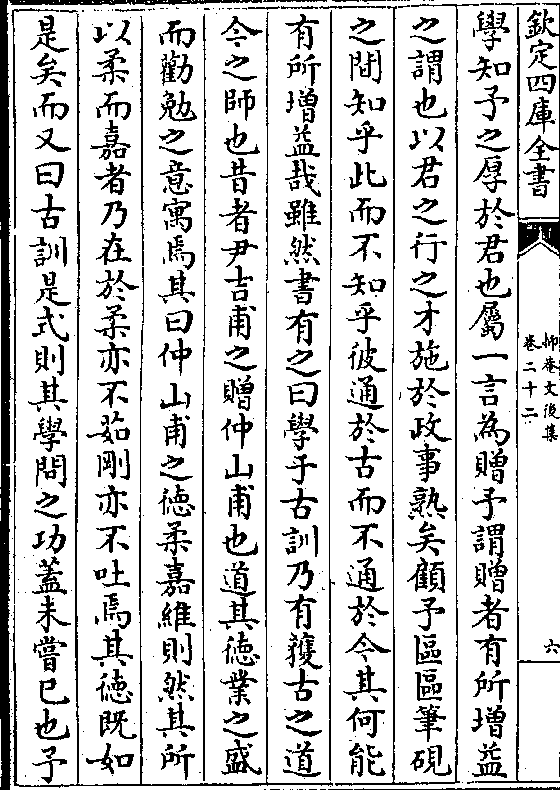 欽定四庫全書
師菴文後集
卷二十二
六
學知予之厚於君也屬一言為贈予謂贈者有所增益
之謂也以君之行之才施於政事熟矣顧予區區筆硯
之間知乎此而不知乎彼通於古而不通於今其何能
有所增益哉雖然書有之曰學于古訓乃有獲古之道
今之師也昔者尹吉甫之贈仲山甫也道其徳業之盛
而勸勉之意寓焉其曰仲山甫之徳柔嘉維則然其所
以柔而嘉者乃在於柔亦不茹剛亦不吐焉其徳既如
是矣而又曰古訓是式則其學問之功蓋未嘗已也予